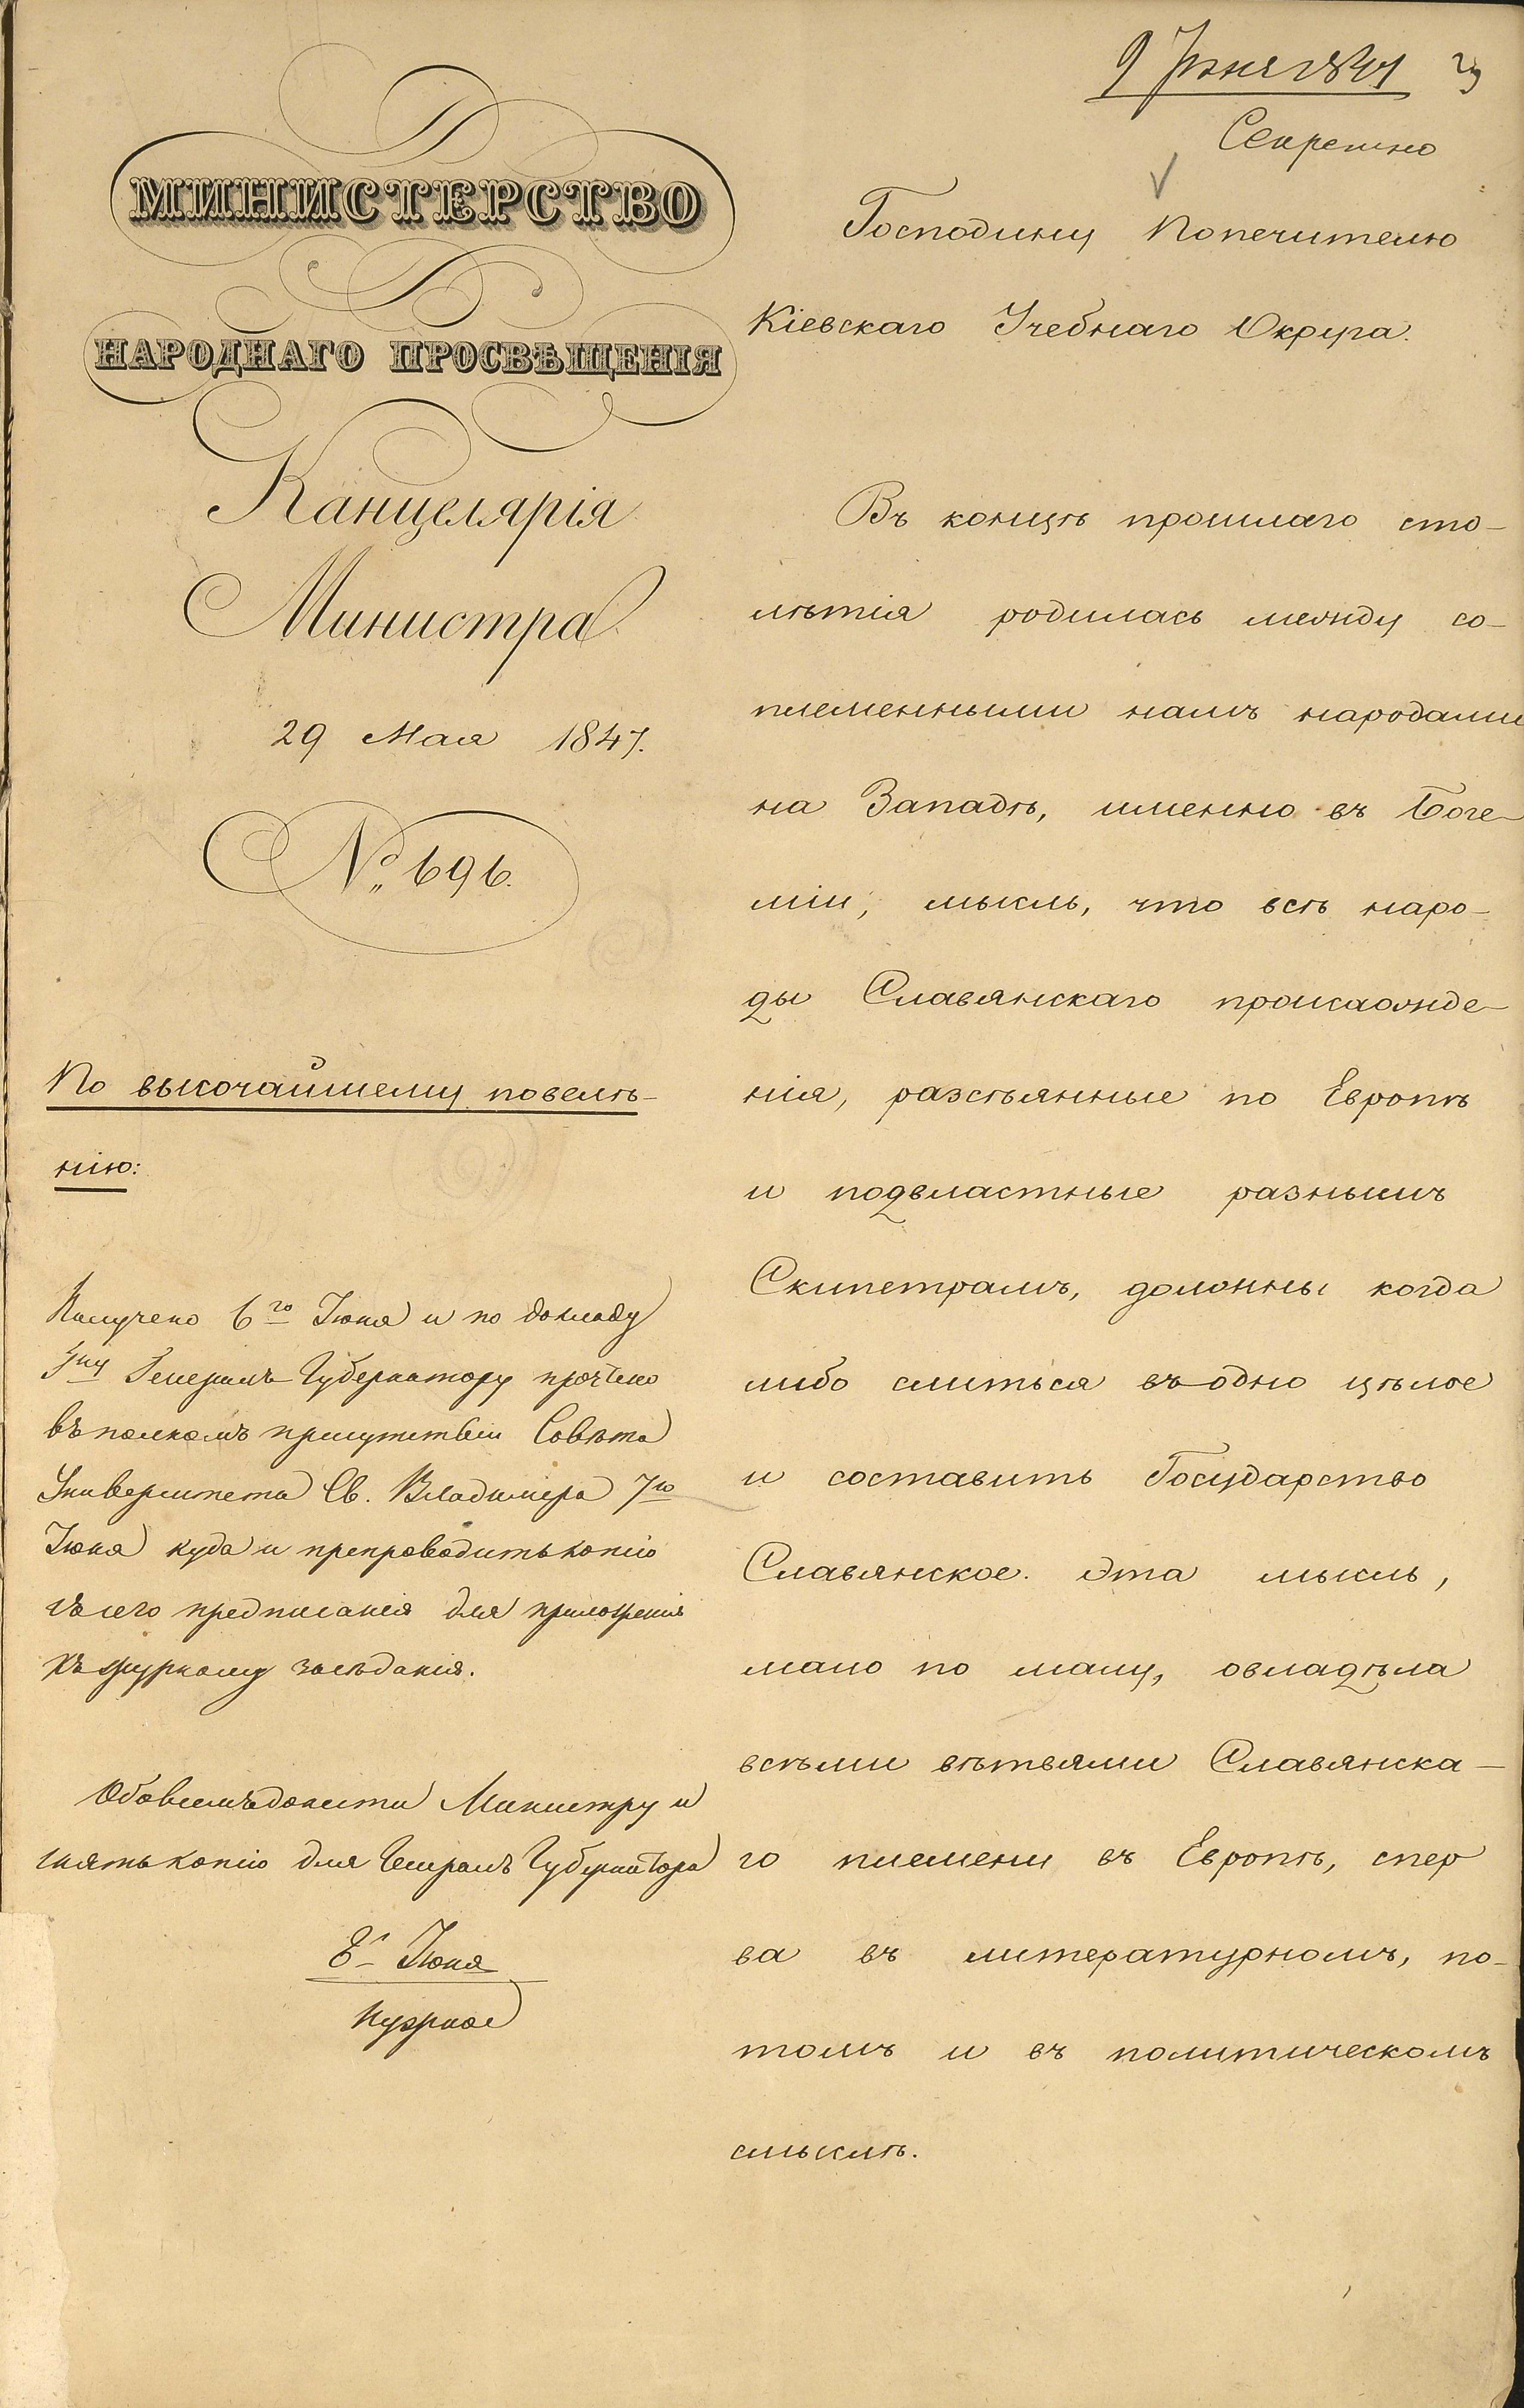 9 Июня 1847
Секретно
МИНИСТЕРСТВО
НАРОДНАГО ПРОСВѢЩЕНІЯ
Канцелярія
Министра
29 Мая 1847.
№ 696.
По высочайшему повелѣ-
нію:
Получено 6го Июня и по докладу
Гну Генералъ Губернатору прочтено
въ полномъ присутствіи Совѣта
Университета Св. Владиміра 7го
Июня куда и препроводить копію
съ сего предписанія для приложенія
къ журналу засѣданія.
Обо всемъ донести Министру и
снять копію для Генералъ Губернатора
8 Июня
Господину Попечителю
Кіевскаго Учебнаго Округа.
Въ концѣ прошлаго сто-
лѣтія родилась между со-
племенными намъ народами
на Западѣ, именно въ Боге-
міи, мысль, что всѣ наро-
ды Славянскаго происхожде-
нія, разсѣянные по Европѣ
и подвластные разнымъ
Скипетрамъ, должны когда
либо слиться въ одно цѣлое
и составить Государство
Славянское. Эта мысль,
мало по малу, овладѣла
всѣми вѣтвями Славянска-
го племени въ Европѣ, спер
ва въ литературномъ, по-
томъ и въ политическомъ
смыслѣ.